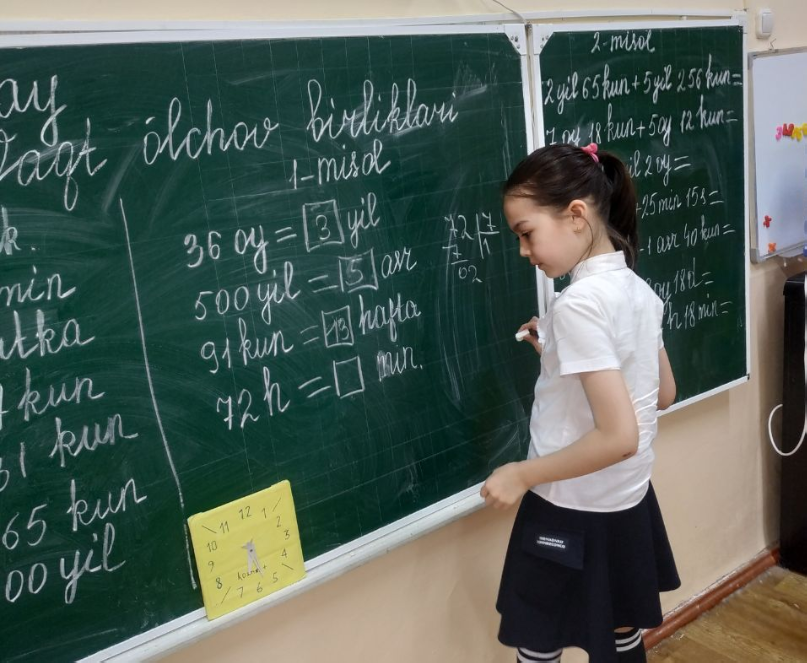 ay
Vaqt ólchov birliklari
1-misol
36 oy = 3 yil
500 yil = 5 asr
91 kun = 13 hafta
72 h = min.
72 7
7 1
02
k.
min
utka
kun
31 kun
65 kun
00 yil
2-misol
2 yil 65 kun + 5 yil 256 kun =
7 oy 18 kun + 5 oy 12 kun =
il 2 oy =
+ 25 min 15 s =
- 1 asr 40 kun =
oy 18 d =
h 18 min =
11 12 1
10 2
9 3
8 4
7 6 5